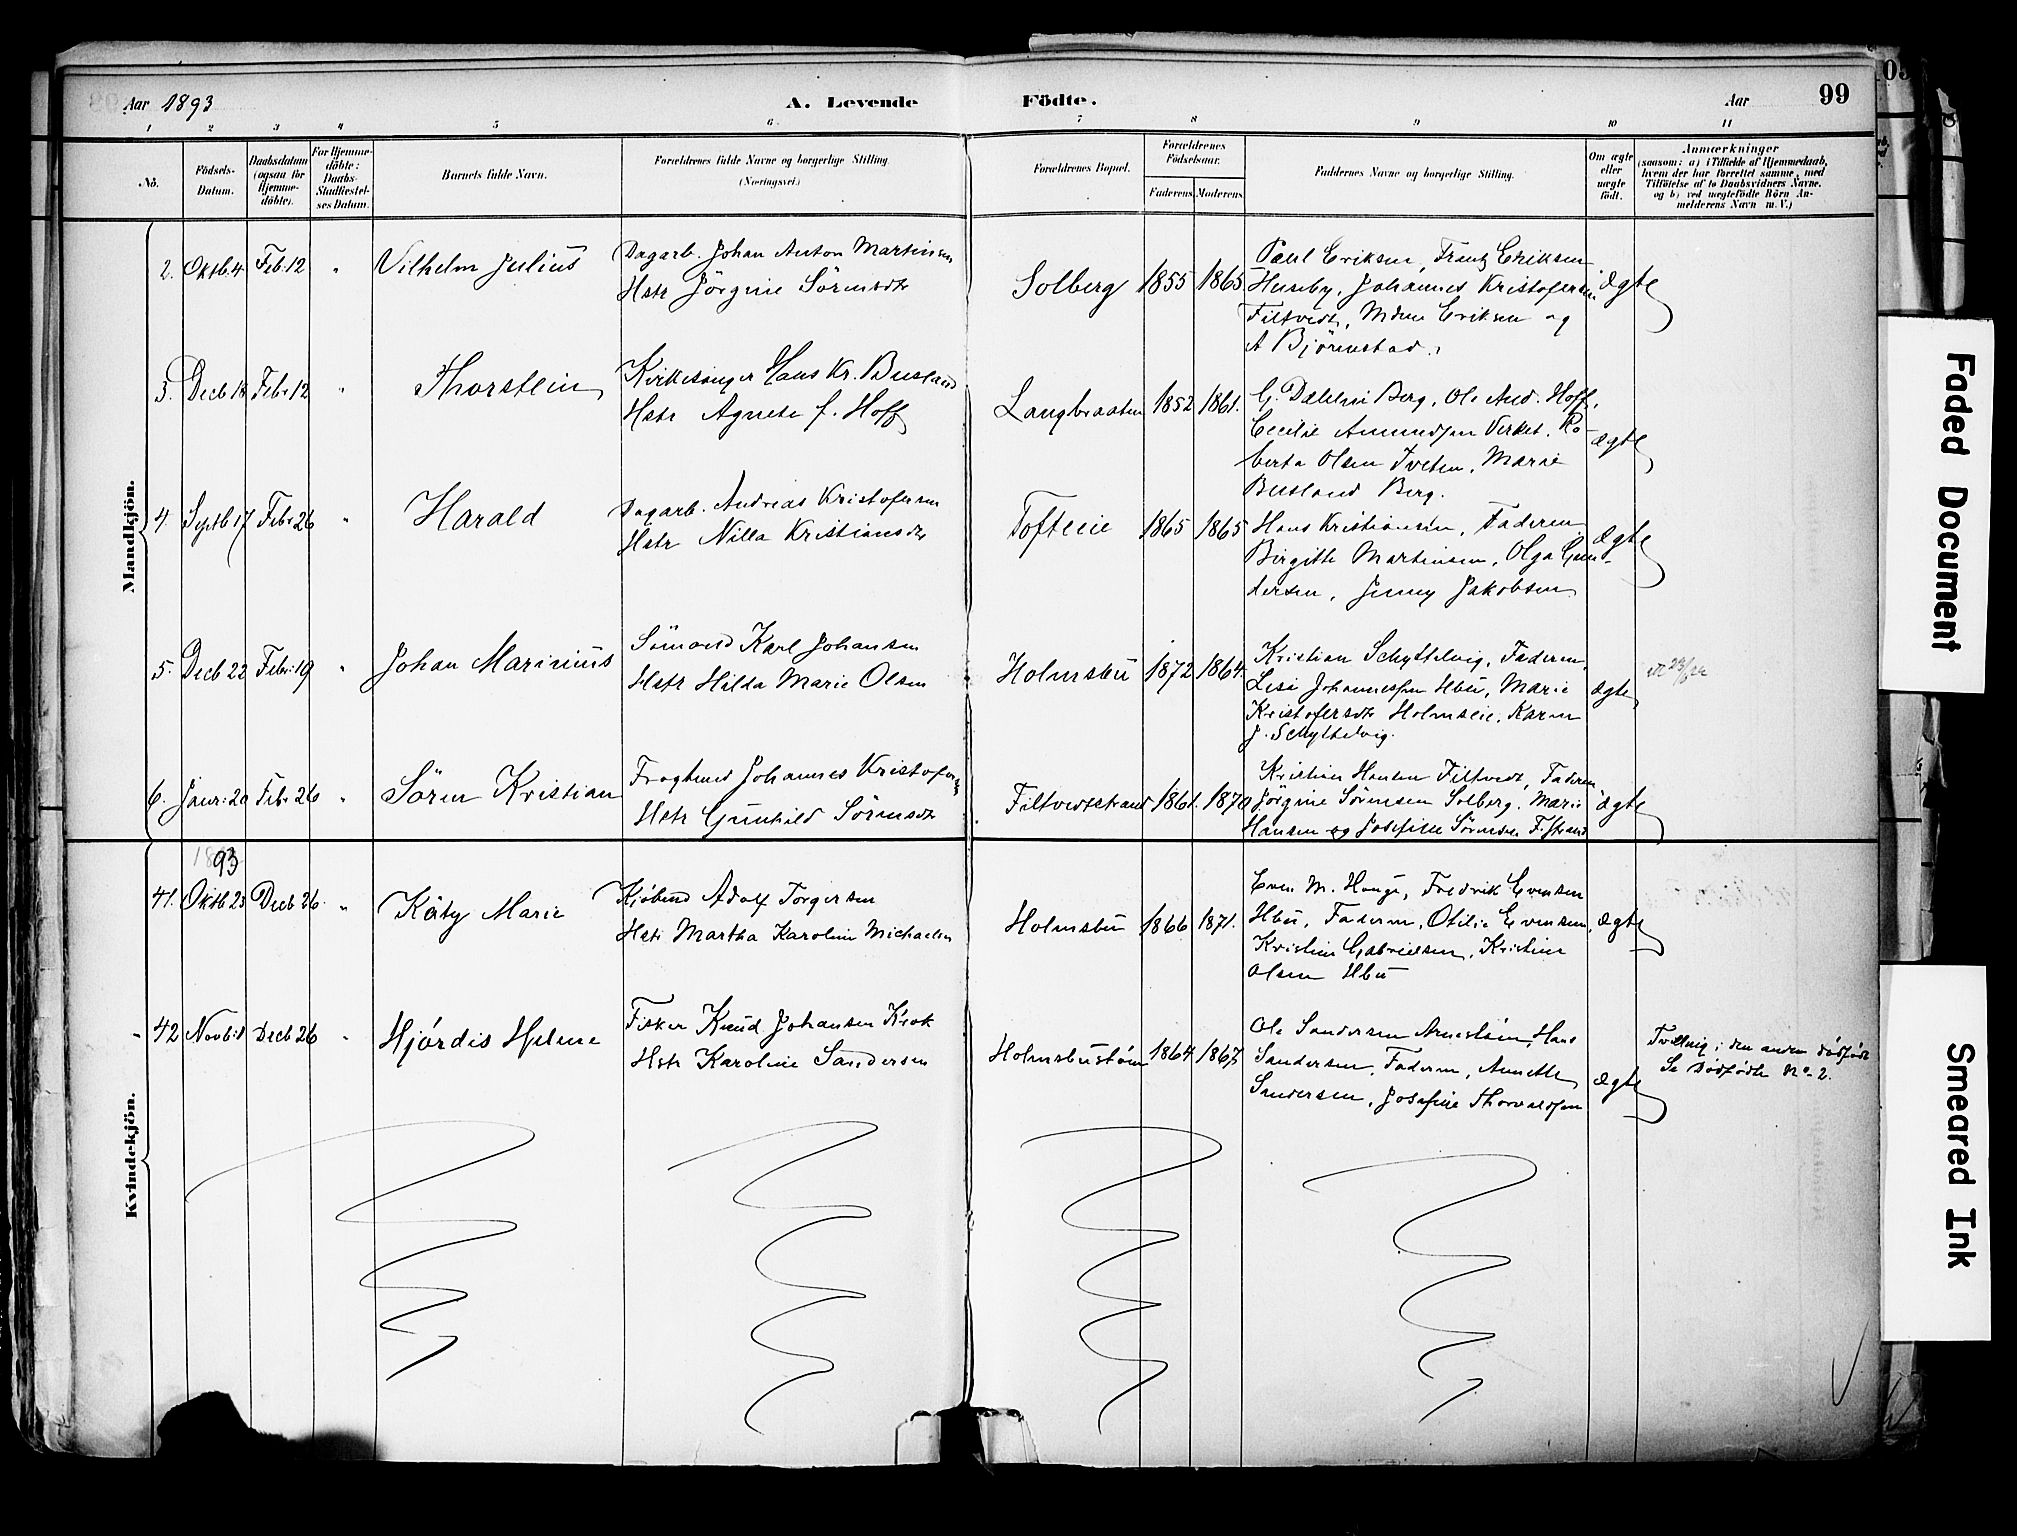 Aar 1893
A. Levende
Födte.
Aar
99
1 2 3 4 5 6 7 8 9 10 11
No.
Födsels-Datum.
Daabsdatum (ogsaa for Hjemme-döbte).
For Hjemme-döbte: Daabs-Stadfæstel-ses Datum.
Barnets fulde Navn.
Forældrenes fulde Navne og borgerlige Stilling.
(Næringsvei.)
Forældrenes Bopæl.
Forældrenes Födselsaar.
Faderens Moderens
Faddernes Navne og borgerlige Stilling.
Om ægte eller uægte födt.
Anmærkninger
(saasom: a) i Tilfælde af Hjemmedaab,
hvem der har forrettet samme, med
Tilföielse af to Daabsvidners Navne.
og b) ved uægtefödte Börn An-
melderens Navn m. V.)
Mandkjön.
2. Oktb. 4 Feb. 12 " Vilhelm Julius
Dagarb. Johan Anton Martinsen
Hstr Jörgine Sörensdtr
Solberg 1855 1865
Paul Eriksen, Frantz Eriksen
Huseby, Johannes Kristofersen
Filtvedt, Eriksen og
A Björnstad.
ægte
3. Decb 18 Feb. 12 " Thorstein
Kirkesanger Hans Kr. Busland
Hstr Agnete f. Hoff
Langbraaten 1852 1861.
G. Berg, Ole And. Hoff,
Cecilie Amundsen Verket, Ro-
berta Olsen Tveten, Marie
Busland Berg.
ægte
4. Septb 17 Feb. 26 " Harald
Dagarb. Andreas Kristofersen
Hstr Nilla Kristiansdtr
Tofteeie 1865 1865
Hans Kristiansen, Faderen
Birgitte Martinsen, Olga Gun-
dersen, Jenny Jakobsen
ægte
5. Decb 22 Feb. 19 " Johan Marinius
Sömand Karl Johansen
Hstr Hilda Marie Olsen
Holmsbu 1872 1864.
Kristian Schyttelvig, Faderen,
Lisa Johannessen Hbu, Marie
Kristofersdtr Holmseie, Karen
J. Schyttelvig.
ægte
6. Januar 20 Feb. 26 " Sören Kristian
Fragtmd Johannes Kristofersen
Hstr Gunhild Sörensdtr
Filtvedtstrand 1861. 1870
Kristian Hansen Filtvedt, Faderen
Jörgine Sörensen Solberg, Marie
Hansen og Josefine Sörensen F.strand
ægte
Kvindekjön.
93
41. Oktb 23 Decb 26. " Käty Marie
Kjöbmd Adolf Torgersen
Hstr Martha Karoline Michaelsen
Holmsbu 1866 1871.
Even M. Hauge, Fredrik Evensen
Hbu, Faderen, Otilie Evensen,
Kristine Gabrielsen, Kristine
Olsen Hbu
ægte
42 Novb. 8 Decb 26 " Hjördis Helene
Fisker Knud Johansen Krok
Hstr Karoline Sandersen
Holmsbustöen 1864 1867
Ole Sandersen Arnestöen, Hans
Sandersen, Faderen, Annette
Sandersen, Josefine Thorvaldsen
ægte
Tvilling; den anden dödfödt
Se Dödfödte No 2.
Faded Document
Smeared Ink